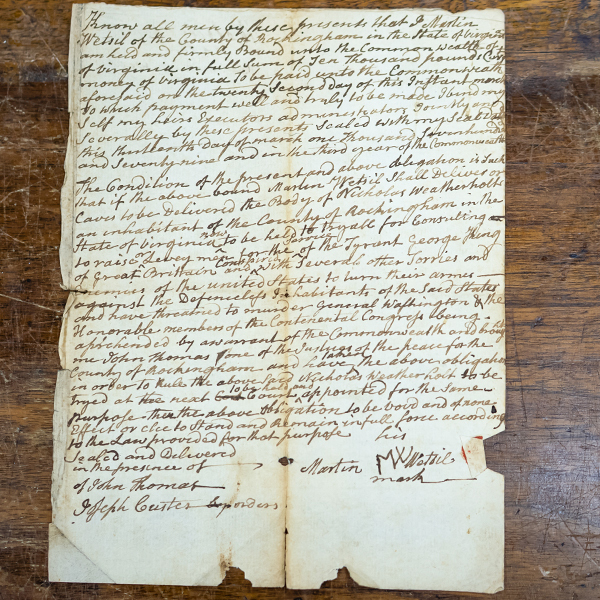 Know all men by these presents that I Martin
Wetsil of the County of Rockingham in the State of virginia
am held and firmly Bound unto the Common wealth of
of virginia in full Sum of Ten Thousand pounds Curt
money of virginia To be paid unto the Commonwealth
aforesaid on the twenty Second day of this Instant month
to which payment well and truly to be made I bind my
Self my heirs Executors administrators Jointly and
Severally by these presents Sealed with my Seal Dated
this thirteenth Day of march one thousand Sevenhundred
and Seventy nine and in the third year of the Commonwealth
The Condition of the present and above obligation is Such
that if the above bound Martin Wetsil Shall Deliver or
Caves to be Delivered the Body of Nicholas Weatherholt
an inhabitant of the County of Rockingham in the
State of virginia to be held to tryable for Consulting
to raise men for the Service of the Tyrant George King
of Great Brittain and Conspiring with Several other Tories and
of the united States to turn their armes
against the Defenceless Inhabitants of the Said States
and have threatned to murder General Washington & the
Honorable members of the Continental Congress being
aprehended by a warrant of the Commonwealth and brought
me John Thomas one of the Justices of the peace for the
County of Rockingham and have taken the above obligation
in order to the above Said Nicholas Weatherholt to be
tryed at the next Court to be held and appointed for the Same
purpose then the above obligation to be void and of none
Effect or else to Stand and Remain in full force according
to the Law provided for that purpose his
Sealed and Delivered
in the presence of Martin MW Wetsil
of John Thomas mark
Joseph Custer